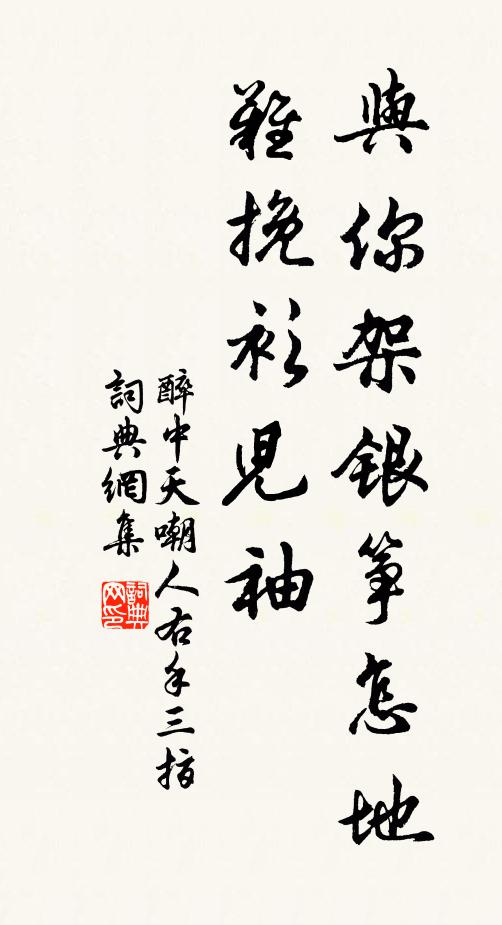 與你架銀箏怎地
難挽衫兒袖
醉中天嘲人右手三指
詞典網集
詞典
网印